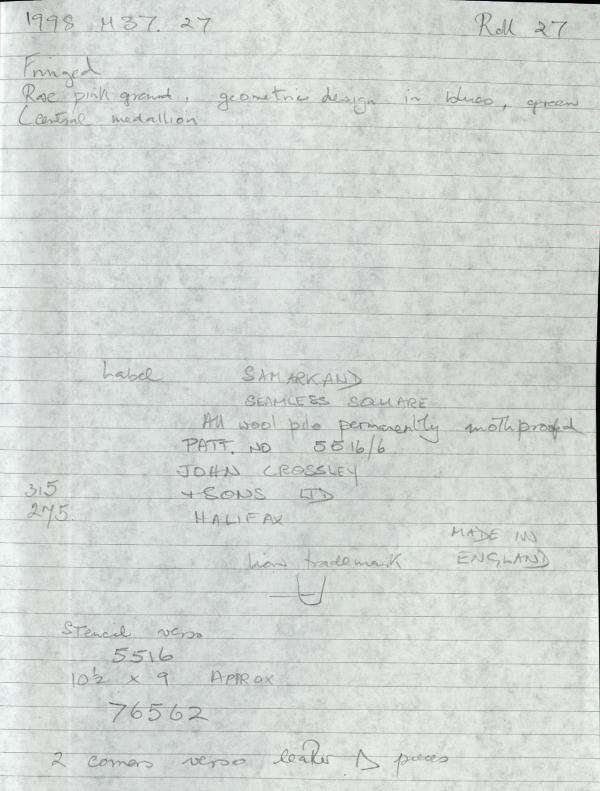 1998 M37. 27 Roll 27
Fringed
Rose pink ground, geometric design in blues, green
Central medallion
Label SAMARKAND
SEAMLESS SQUARE
All wool pile permanently mothproofed
PATT. NO 5516/6
JOHN CROSSLEY
315 + SONS LTD
275. HALIFAX
MADE IN
lion trademark ENGLAND
Stencil verso
5516
10½ x 9 APPROX
76562
2 corners verso leather △ pieces